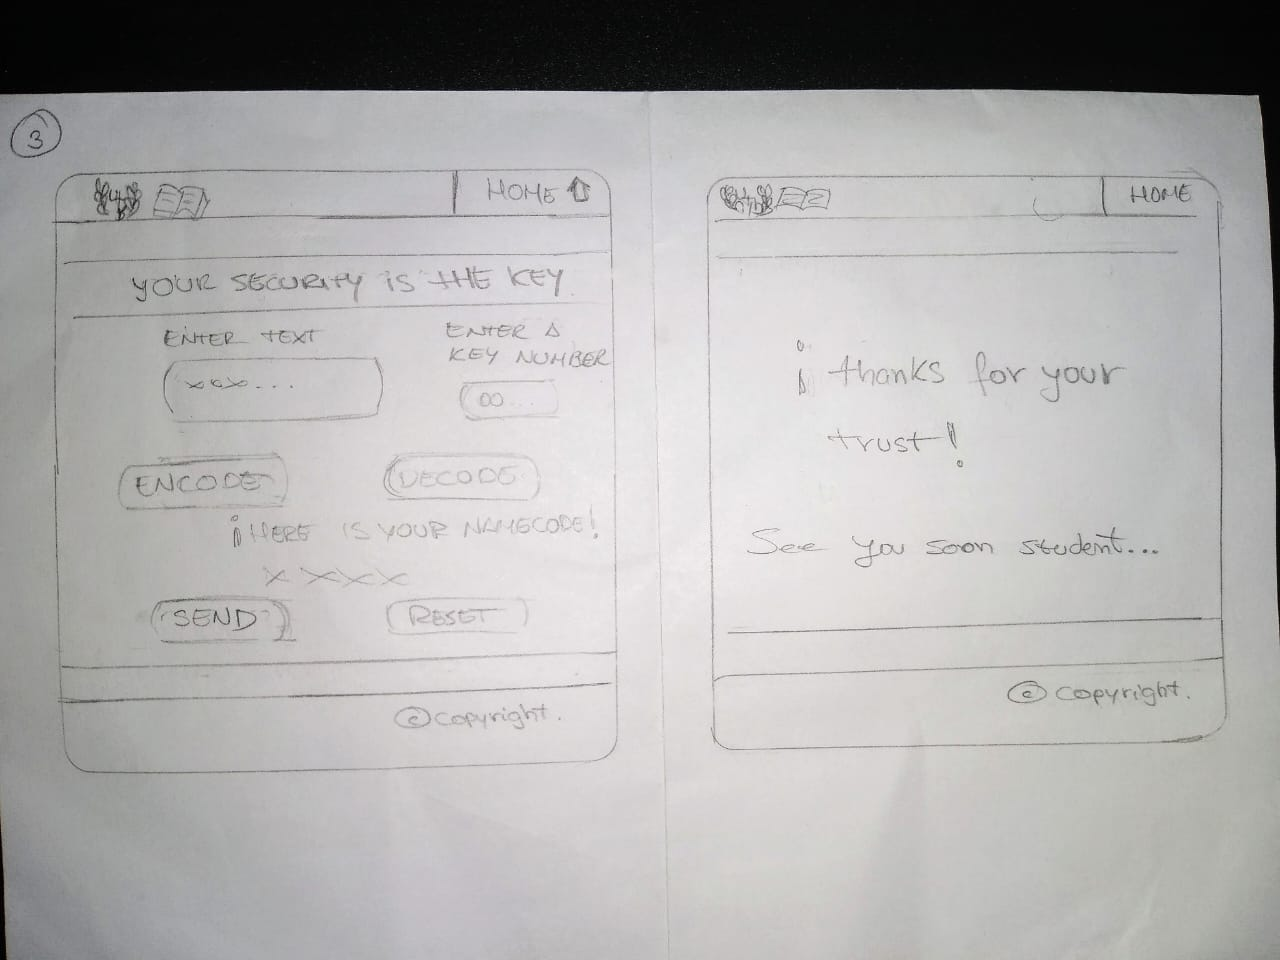 3
HOME
YOUR SECURITY IS THE KEY
ENTER TEXT
ENTER A
KEY NUMBER
xxx...
00...
ENCODE
DECODE
¡HERE IS YOUR NAMECODE!
XXXX
SEND
RESET
© copyright.
HOME
¡ thanks for your
trust!
See you soon student...
© copyright.